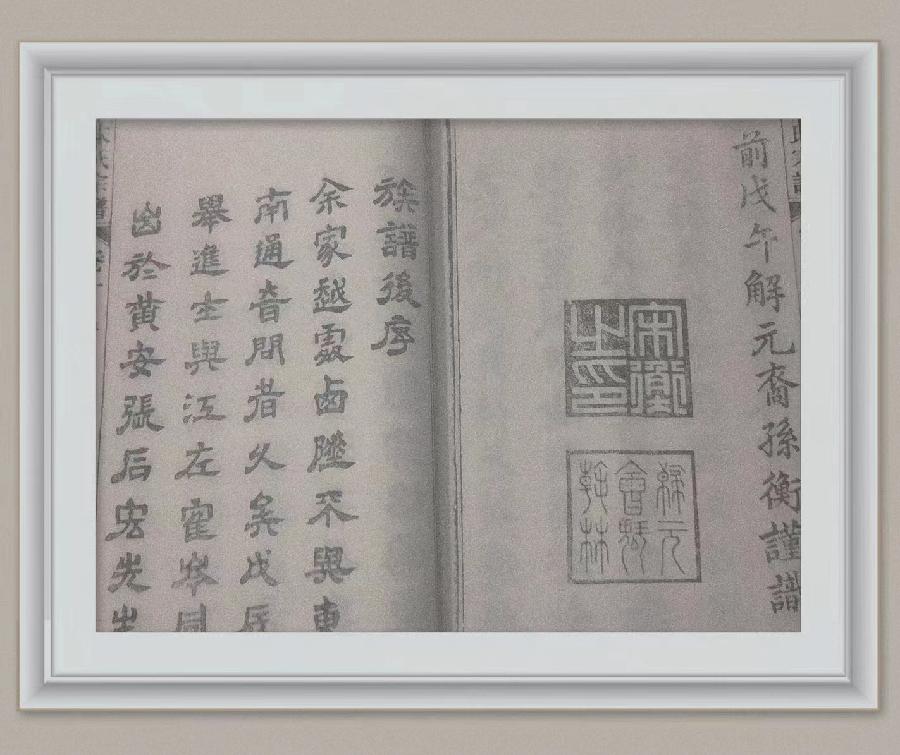 前戊午解元裔孫衡謹譜
宋衡之印
解元會魁翰林
族譜後序
余家越處西陲不與東
南通音問者久矣戊辰
舉進士與江左霍岑同
出於黃安張后宏先生